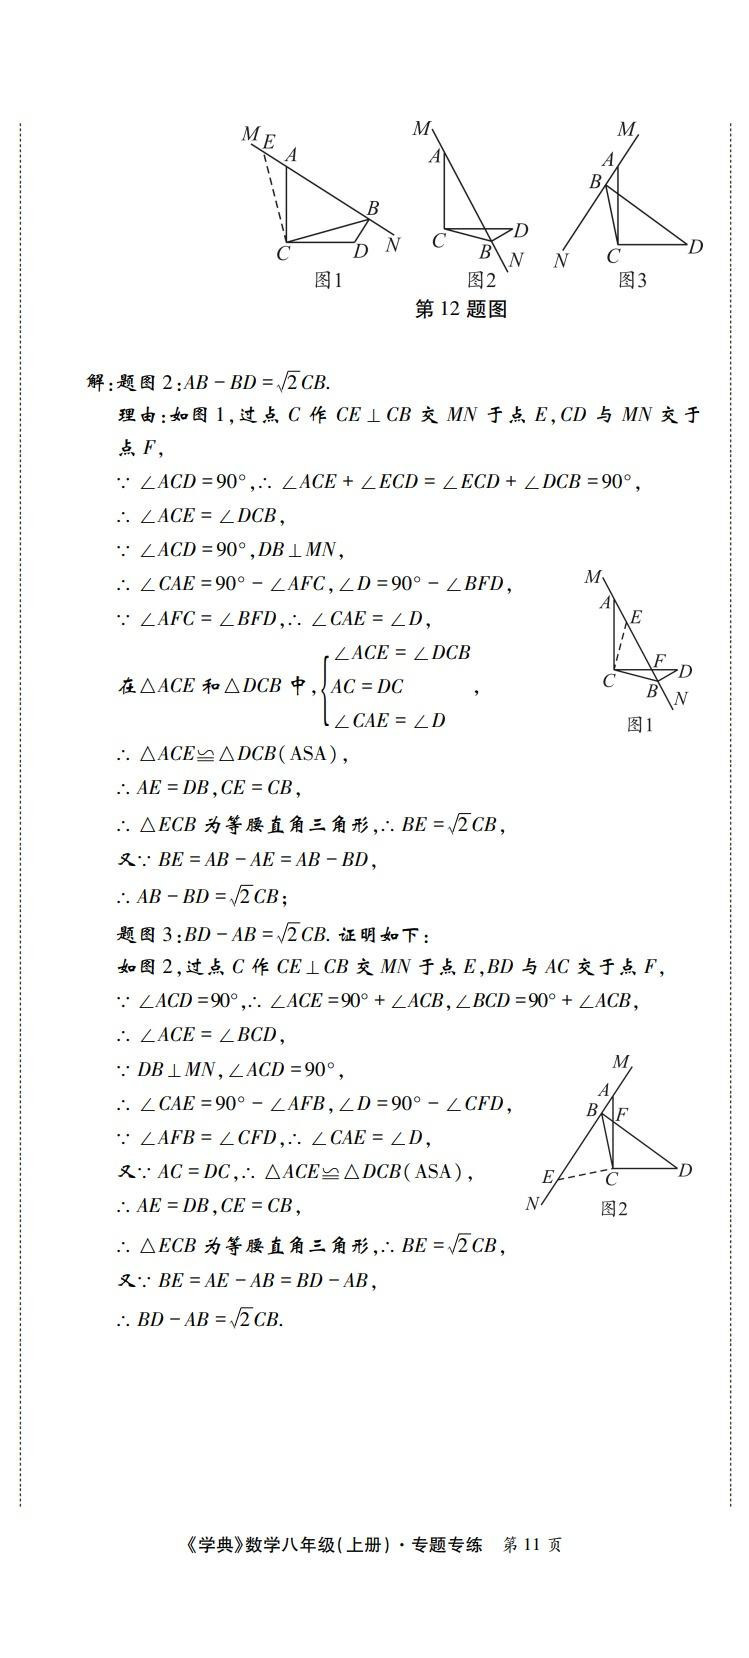 M E A B C D N
M A C B D N
M A B C D N
图1 图2 图3
第 12 题图
解:题图 2:AB − BD = √2CB.
理由:如图 1,过点 C 作 CE ⊥ CB 交 MN 于点 E,CD 与 MN 交于
点 F,
∵ ∠ACD = 90°,∴ ∠ACE + ∠ECD = ∠ECD + ∠DCB = 90°,
∴ ∠ACE = ∠DCB,
∵ ∠ACD = 90°,DB ⊥ MN,
∴ ∠CAE = 90° − ∠AFC,∠D = 90° − ∠BFD,
∵ ∠AFC = ∠BFD,∴ ∠CAE = ∠D,
在 △ACE 和 △DCB 中,{∠ACE = ∠DCB
AC = DC ,
∠CAE = ∠D
M A E F C D B N
图1
∴ △ACE≌△DCB(ASA),
∴ AE = DB,CE = CB,
∴ △ECB 为等腰直角三角形,∴ BE = √2CB,
又∵ BE = AB − AE = AB − BD,
∴ AB − BD = √2CB;
题图 3:BD − AB = √2CB. 证明如下:
如图 2,过点 C 作 CE ⊥ CB 交 MN 于点 E,BD 与 AC 交于点 F,
∵ ∠ACD = 90°,∴ ∠ACE = 90° + ∠ACB,∠BCD = 90° + ∠ACB,
∴ ∠ACE = ∠BCD,
∵ DB ⊥ MN,∠ACD = 90°,
∴ ∠CAE = 90° − ∠AFB,∠D = 90° − ∠CFD,
∵ ∠AFB = ∠CFD,∴ ∠CAE = ∠D,
又∵ AC = DC,∴ △ACE≌△DCB(ASA),
∴ AE = DB,CE = CB,
M A B F E C D N
图2
∴ △ECB 为等腰直角三角形,∴ BE = √2CB,
又∵ BE = AE − AB = BD − AB,
∴ BD − AB = √2CB.
《学典》数学八年级(上册)·专题专练 第 11 页